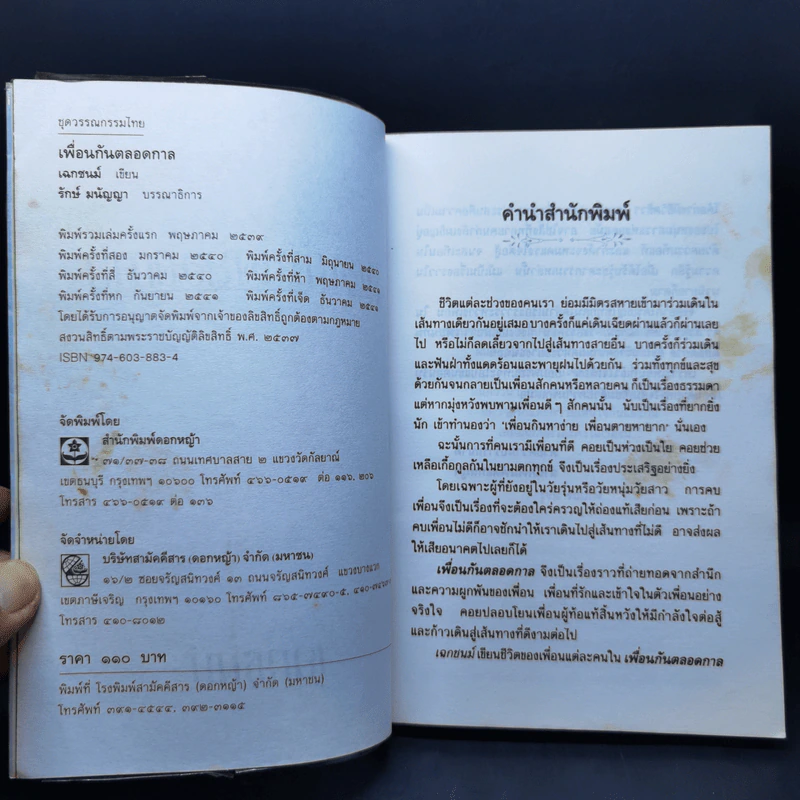 ชุดวรรณกรรมไทย
เพื่อนกันตลอดกาล
เฉกชนม์ เขียน
รักษ์ มนัญญา บรรณาธิการ
พิมพ์รวมเล่มครั้งแรก พฤษภาคม ๒๕๓๙
พิมพ์ครั้งที่สอง มกราคม ๒๕๔๐ พิมพ์ครั้งที่สาม มิถุนายน ๒๕๔๐
พิมพ์ครั้งที่สี่ ธันวาคม ๒๕๔๐ พิมพ์ครั้งที่ห้า พฤษภาคม ๒๕๔๑
พิมพ์ครั้งที่หก กันยายน ๒๕๔๑ พิมพ์ครั้งที่เจ็ด ธันวาคม ๒๕๔๑
โดยได้รับการอนุญาตจัดพิมพ์จากเจ้าของลิขสิทธิ์ถูกต้องตามกฎหมาย
สงวนสิทธิ์ตามพระราชบัญญัติลิขสิทธิ์ พ.ศ. ๒๕๓๗
ISBN 974-603-883-4
จัดพิมพ์โดย
สำนักพิมพ์ดอกหญ้า
๗๑/๓๗-๓๘ ถนนเทศบาลสาย ๒ แขวงวัดกัลยาณ์
เขตธนบุรี กรุงเทพฯ ๑๐๖๐๐ โทรศัพท์ ๔๖๖-๐๕๑๙ ต่อ ๑๑๖, ๒๐๖
โทรสาร ๔๖๖-๐๕๑๙ ต่อ ๑๓๖
จัดจำหน่ายโดย
บริษัทสามัคคีสาร (ดอกหญ้า) จำกัด (มหาชน)
๑๖/๒ ซอยจรัญสนิทวงศ์ ๑๓ ถนนจรัญสนิทวงศ์ แขวงบางแวก
เขตภาษีเจริญ กรุงเทพฯ ๑๐๑๖๐ โทรศัพท์ ๘๖๕-๗๔๙๐-๕,
โทรสาร ๔๑๐-๘๐๑๒
ราคา ๑๑๐ บาท
พิมพ์ที่ โรงพิมพ์สามัคคีสาร (ดอกหญ้า) จำกัด (มหาชน)
โทรศัพท์ ๓๙๑-๔๕๔๔, ๓๙๒-๓๑๑๕
คำนำสำนักพิมพ์
ชีวิตแต่ละช่วงของคนเรา ย่อมมีมิตรสหายเข้ามาร่วมเดินใน
เส้นทางเดียวกันอยู่เสมอ บางครั้งก็แค่เดินเฉียดผ่านแล้วก็ผ่านเลย
ไป หรือไม่ก็ลดเลี้ยวจากไปสู่เส้นทางสายอื่น บางครั้งก็ร่วมเดิน
และฟันฝ่าทั้งแดดร้อนและพายุฝนไปด้วยกัน ร่วมทั้งทุกข์และสุข
ด้วยกันจนกลายเป็นเพื่อนสักคนหรือหลายคน ก็เป็นเรื่องธรรมดา
แต่หากมุ่งหวังพบพานเพื่อนดี ๆ สักคนนั้น นับเป็นเรื่องที่ยากยิ่ง
นัก เข้าทำนองว่า ‘เพื่อนกินหาง่าย เพื่อนตายหายาก’ นั่นเอง
ฉะนั้นการที่คนเรามีเพื่อนที่ดี คอยเป็นห่วงเป็นใย คอยช่วย
เหลือเกื้อกูลกันในยามตกทุกข์ จึงเป็นเรื่องประเสริฐอย่างยิ่ง
โดยเฉพาะผู้ที่ยังอยู่ในวัยรุ่นหรือวัยหนุ่มวัยสาว การคบ
เพื่อนจึงเป็นเรื่องที่จะต้องใคร่ครวญให้ถ่องแท้เสียก่อน เพราะถ้า
คบเพื่อนไม่ดีก็อาจชักนำให้เราเดินไปสู่เส้นทางที่ไม่ดี อาจส่งผล
ให้เสียอนาคตไปเลยก็ได้
เพื่อนกันตลอดกาล จึงเป็นเรื่องราวที่ถ่ายทอดจากสำนึก
และความผูกพันของเพื่อน เพื่อนที่รักและเข้าใจในตัวเพื่อนอย่าง
จริงใจ คอยปลอบโยนเพื่อนผู้ท้อแท้สิ้นหวังให้มีกำลังใจต่อสู้
และก้าวเดินสู่เส้นทางที่ดีงามต่อไป
เฉกชนม์ เขียนชีวิตของเพื่อนแต่ละคนใน เพื่อนกันตลอดกาล